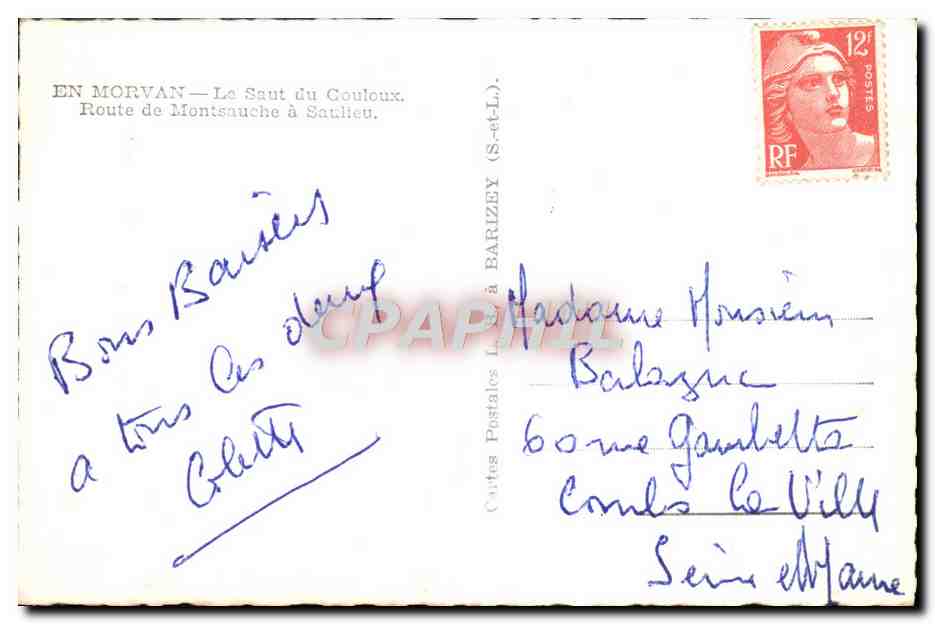 EN MORVAN — Le Saut du Gouloux.
Route de Montsauche à Saulieu.
Bons Baisers
a tous les deux
Colette
Cartes Postales L. à BARIZEY (S.-et-L.).
12f
POSTES
RF
Madame Monsieur
Balague
60 rue Gambetta
Combs la Ville
Seine et Marne
CPAPHIL